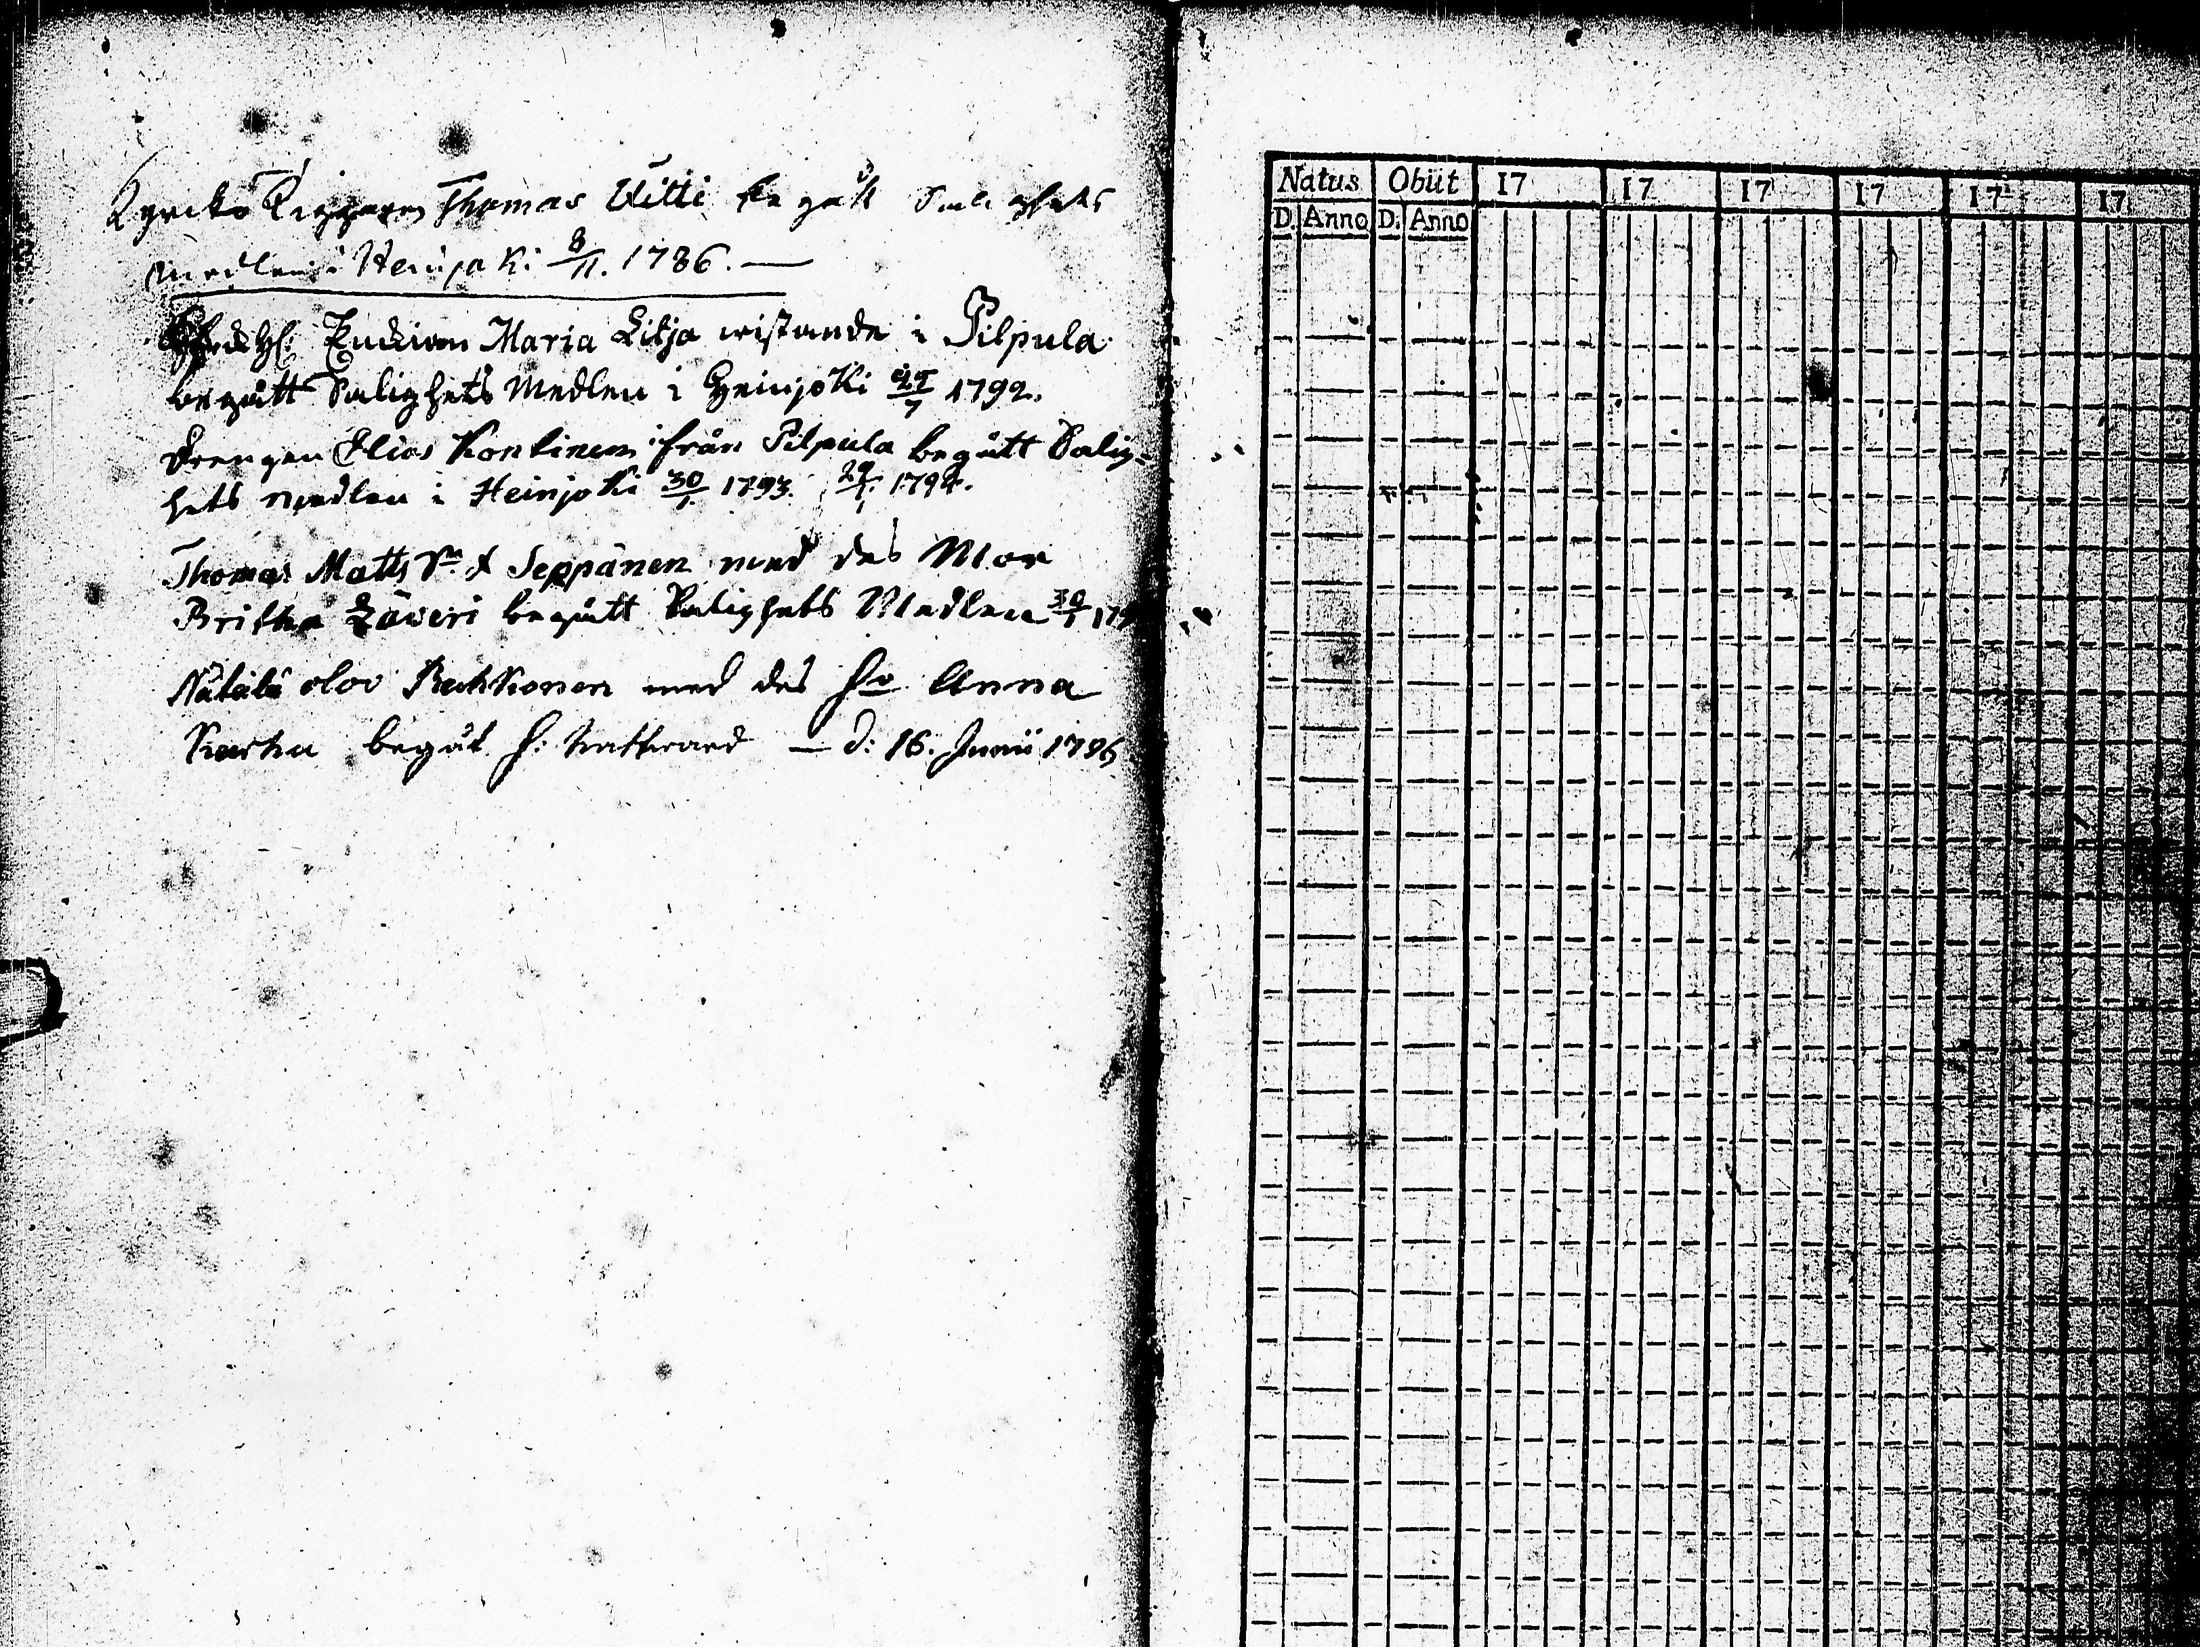 Kyrcko Tiggaren Thomas Vitti begått Salighets
medlen i Heinjoki 8/11. 1786.
Enckian Maria Litja wistande i Pilpula
begått Salighets Medlen i Heinjoki 1792.
Drengen Elias Kontinen ifrån Pilpula begått Salig-
hets medlen i Heinjoki 30/1 1793. 29/1 1794.
Thomas Matts Sn Seppänen med des Mor
Britha begått Salighets Medlen 30/1
olov med des Anna
Karhu begåt H: Nattward — d: 16. Junii 1796
Natus Obiit 17 17 17 17 17 17
D. Anno D. Anno